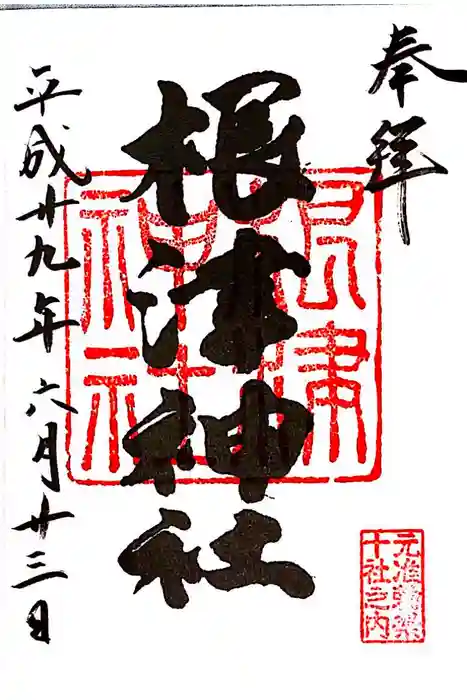 奉拝
根津神社
根津神社
元准勅祭
十社之内
平成廿九年六月廿三日